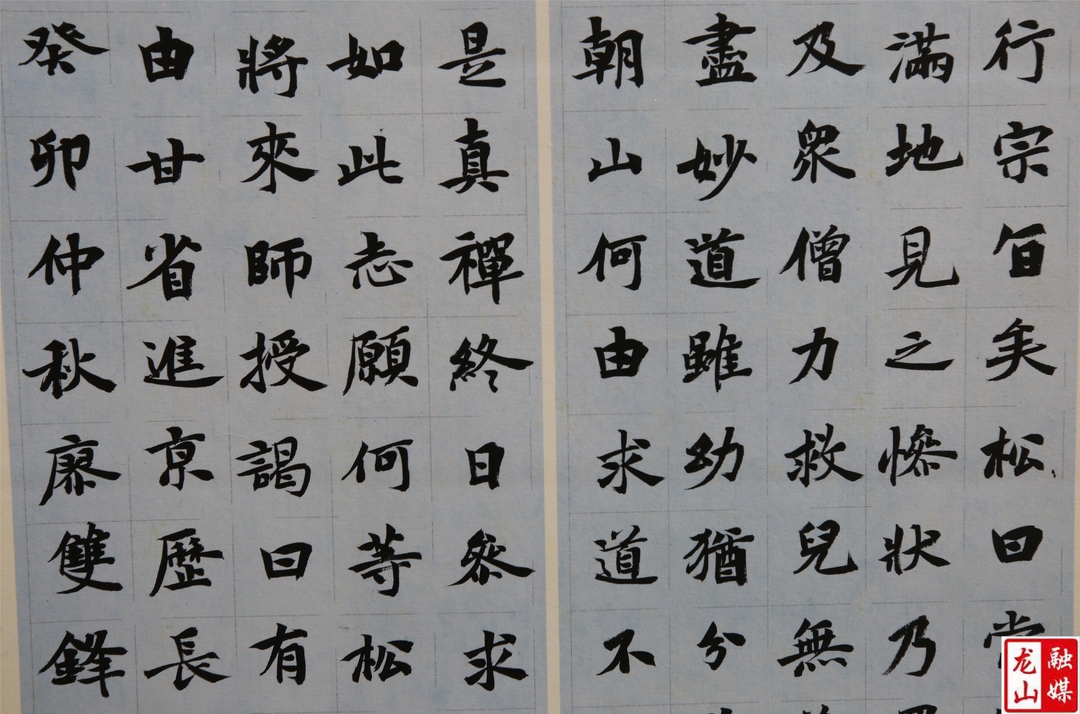 行宗旨矣松曰
滿地見之慘狀乃
及衆僧力救兒無
盡妙道雖幼猶分
朝山何由求道不
是真禪終日參求
如此志願何等松
將來師授謁曰有
由甘省進京歷長
癸卯仲秋廖雙鋒
龙山融媒